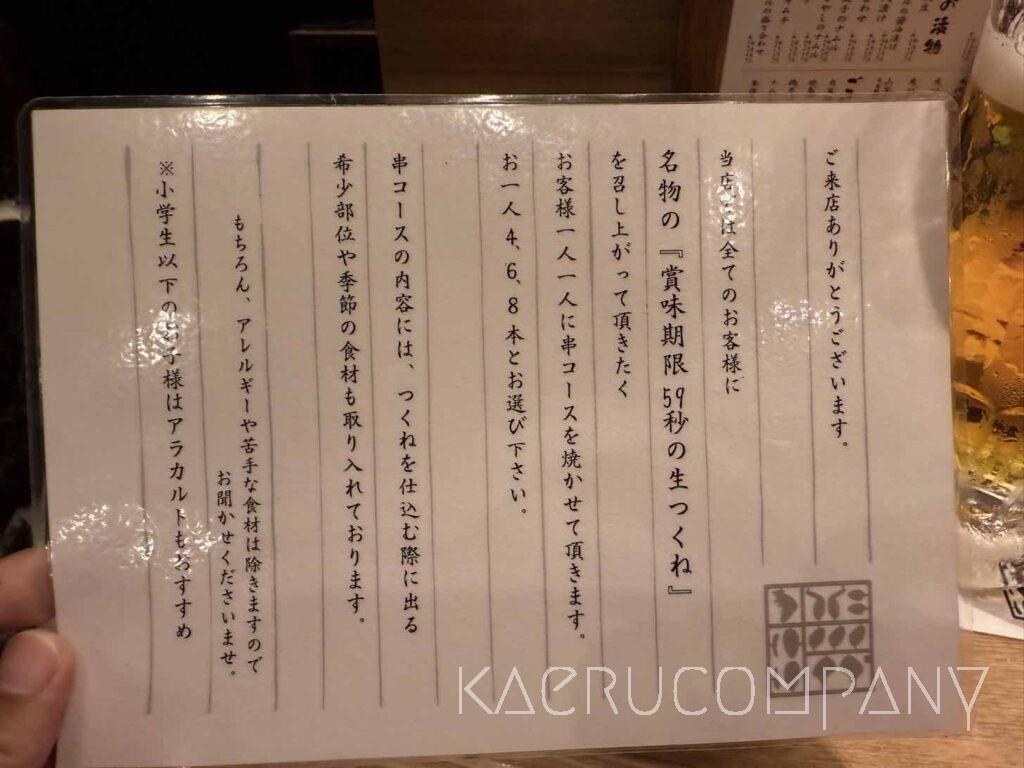 ご来店ありがとうございます。
当店では全てのお客様に
名物の『賞味期限59秒の生つくね』
を召し上がって頂きたく
お客様一人一人に串コースを焼かせて頂きます。
お一人4、6、8本とお選び下さい。
串コースの内容には、つくねを仕込む際に出る
希少部位や季節の食材も取り入れております。
もちろん、アレルギーや苦手な食材は除きますので
お聞かせくださいませ。
※小学生以下のお子様はアラカルトもおすすめ
お漬物
KAERUCOMPANY